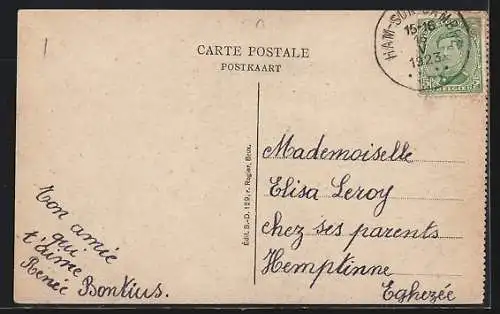 CARTE POSTALE
POSTKAART
HAM-SUR-
15-16
1923
Mademoiselle
Elisa Leroy
chez ses parents
Hemptinne
Eghezée
Ton amie
qui
t'aime
Renée Bontius.
Édit. B.-D. 129, r. Rogier, Brux.